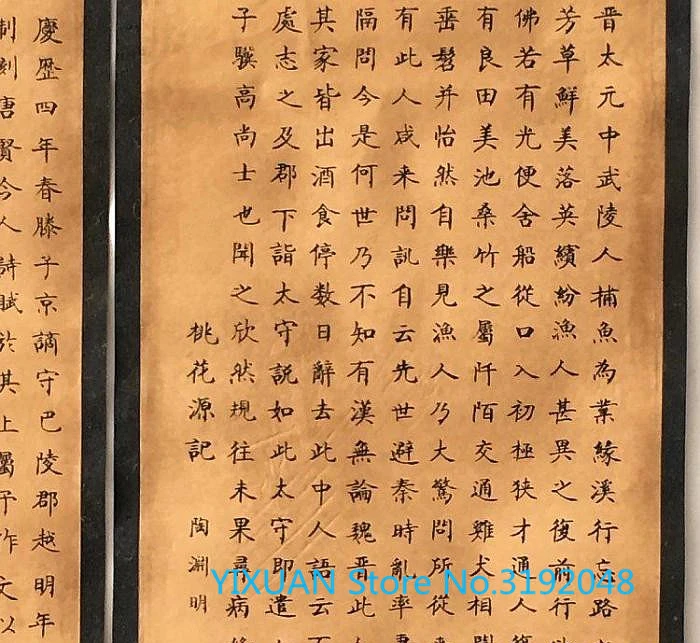 晋太元中武陵人捕魚為業緣溪行忘路
芳草鮮美落英繽紛漁人甚異之復前行
佛若有光便舍船從口入初極狹才通人
有良田美池桑竹之屬阡陌交通雞犬相
垂髫并怡然自樂見漁人乃大驚問所從
有此人咸来問訊自云先世避秦時亂率
隔問今是何世乃不知有漢無論魏晋此
其家皆出酒食停数日辭去此中人語云
處志之及郡下詣太守説如此太守即遣
子驥高尚士也聞之欣然規往未果尋病
桃花源記 陶淵明
慶歴四年春滕子京謫守巴陵郡越明年
制刻唐賢今人詩賦於其上屬予作文以
YIXUAN Store No.3192048